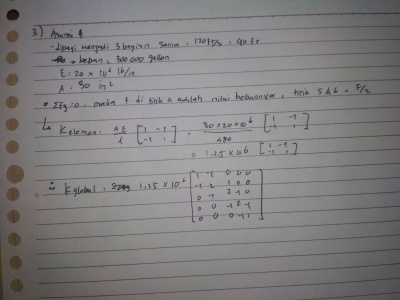 3) Asumsi
- dibagi menjadi 3 bagian sama, 120 ft/3, = 40 ft
* beban = 300 000
E = 20 × 10⁶ lb/in
A = 30 in²
* maka F di titik adalah nilai bebannya, titik = F/2
↳ K elemen = AE/L [1 -1 -1 1] = 30×20×10⁶/480 [1 -1 -1 1]
= 1.25 × 10⁶ [1 -1 -1 1]
∴ K global = 1.25 × 10⁶
1 -1 0 0 0
-1 2 1 0 0
0 -1 2 -1 0
0 0 -1 2 -1
0 0 0 -1 1